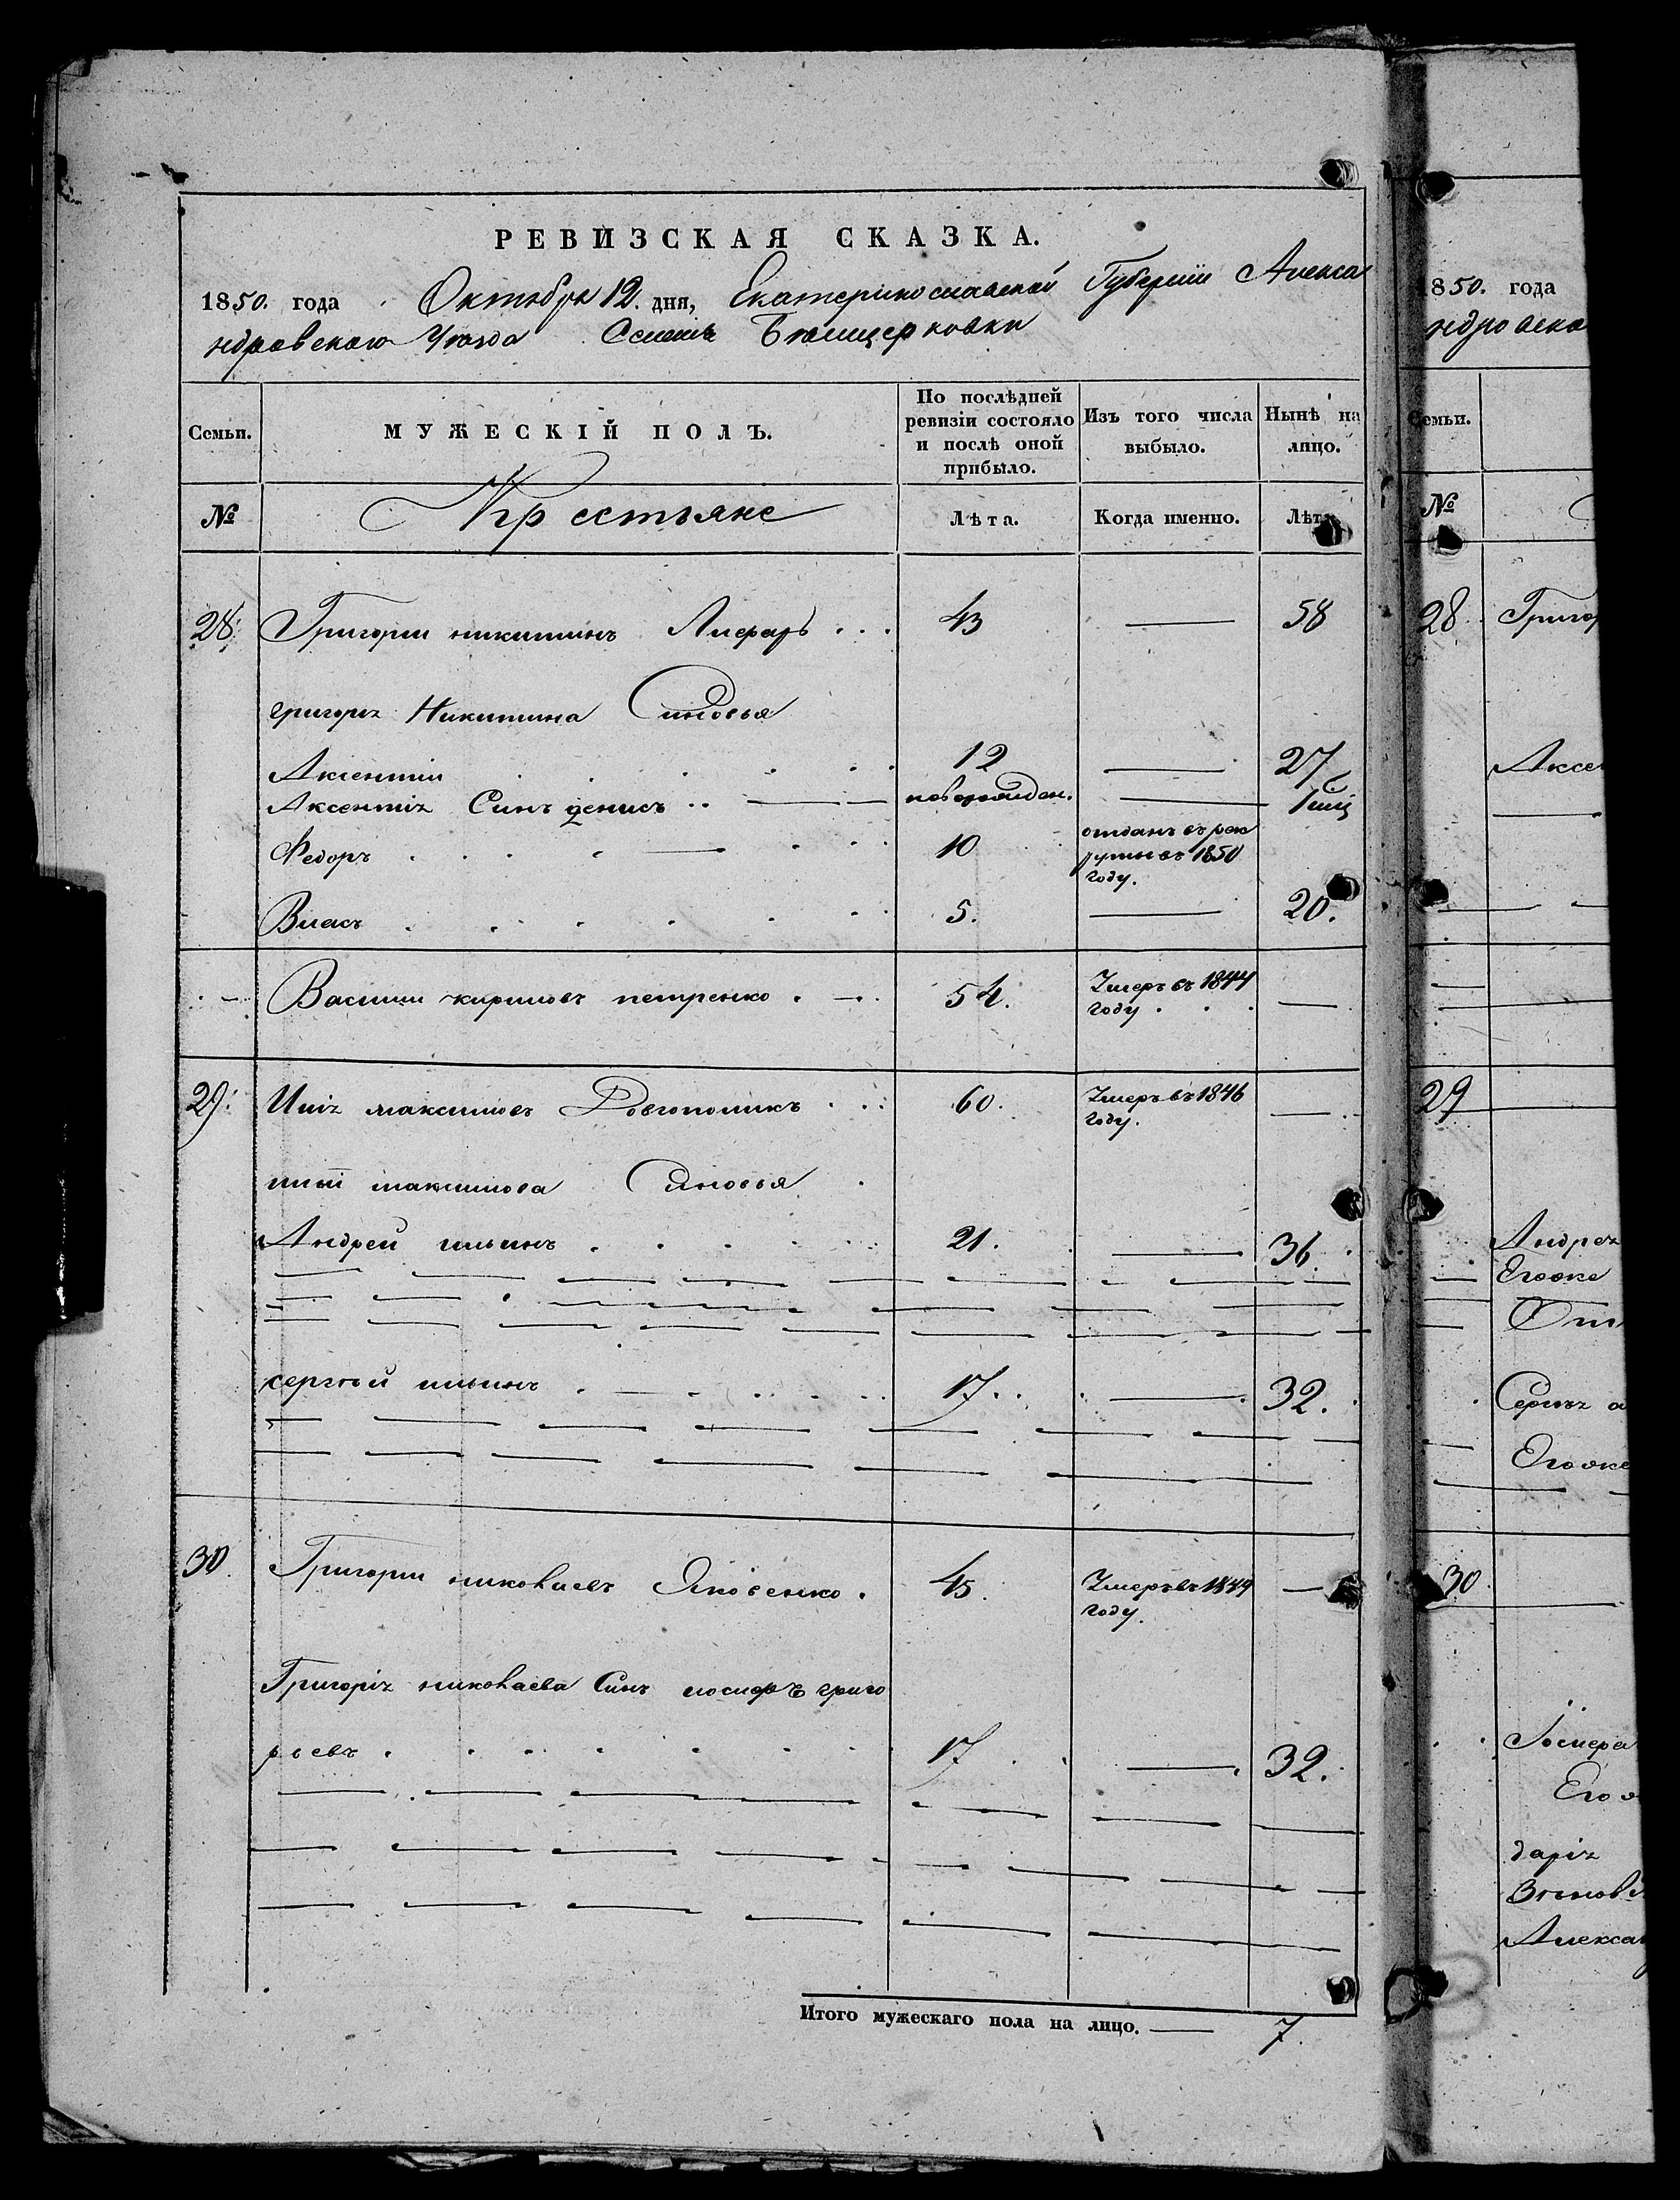 РЕВИЗСКАЯ СКАЗКА.
1850. года Октября 12. дня, Екатеринославской Губернии Алекса
ндровскаго Уѣзда Селенія Бѣлицерковки
Семьи. МУЖЕСКІЙ ПОЛЪ. По послѣдней ревизіи состояло и послѣ оной прибыло. Изъ того числа выбыло. Нынѣ на лицо.
№ Крестьяне Лѣта. Когда именно. Лѣта.
28. Григории никитинъ 43 58
григорія Никитина Синовья
Аксентіи 12 27
Аксентія Синъ денисъ новорожден. 1
Федоръ 10 отданъ въ рек
руты въ 1850
году.
Власъ 5. 20.
Василии кириловъ петренко 54. Умеръ въ 1844
году
29. Иліа максимовъ Довгополикъ 60. Умеръ въ 1846
году.
иліи максимова Синовья
Андреи ильинъ 21. 36.
сергѣй ильинъ 17. 32.
30. Григории николаевъ Яковенко. 45. Умеръ въ 1849
году.
Григорія николаева Синъ иосифъ григо
рьевъ 17 32.
Итого мужескаго пола на лицо. 7.
1850. года
ндровска
Семьи.
№
28. Григор
Аксен
29
Андрея
Егоже
Сергѣя
Егоже
30.
Іосифа
Его
дарія
Зѣновія
Алексан